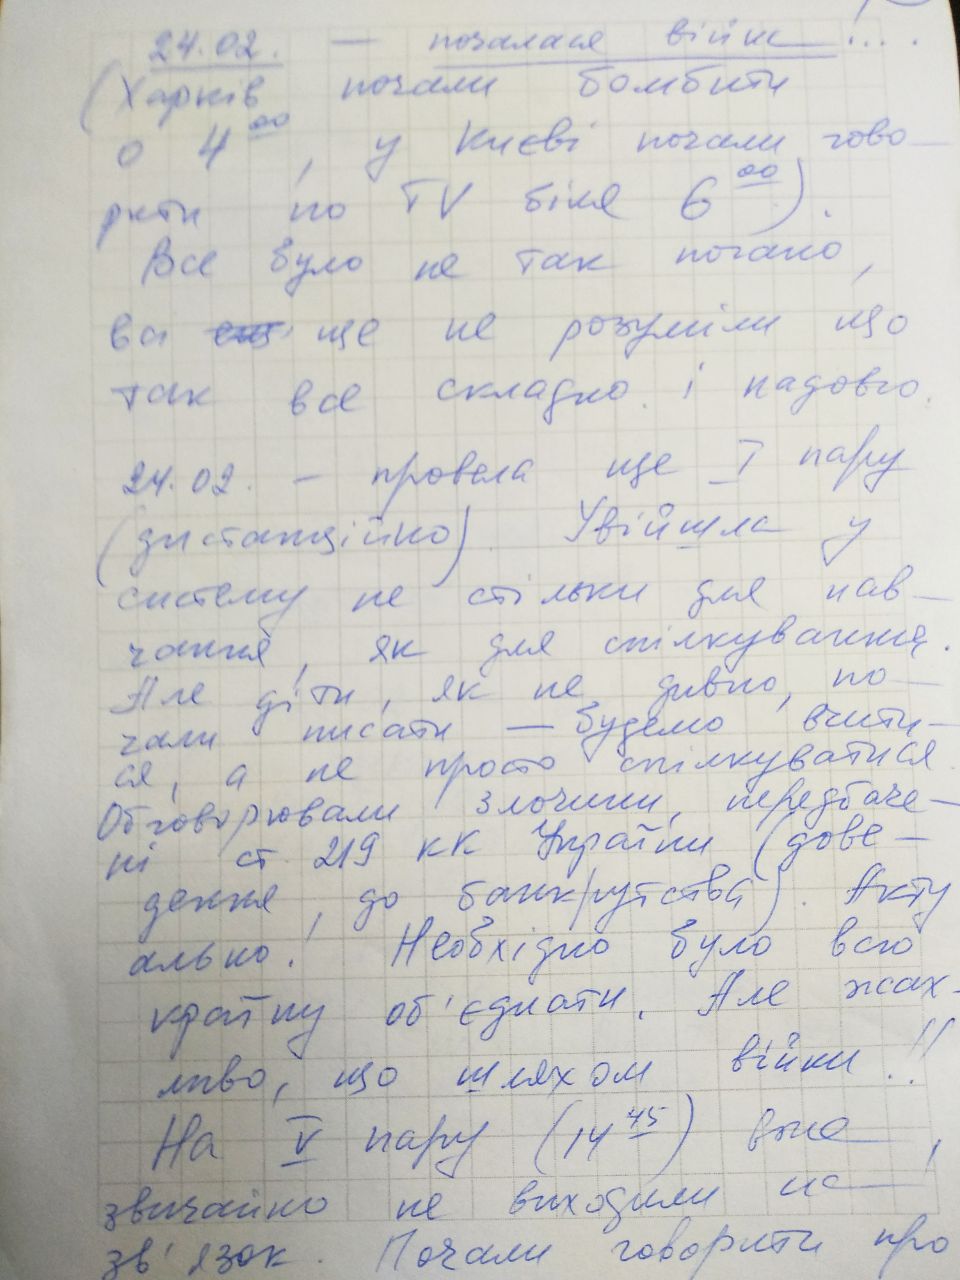 24.02. — почалася війна!...
(Харків почали бомбити
о 4⁰⁰, у Києві почали гово-
рити по TV біля 6⁰⁰).
Все було не так погано,
всі ще не розуміли що
так все складно і надовго.
24.02. – провела ще I пару
(дистанційно). Увійшла у
систему не стільки для нав-
чання, як для спілкування.
Але діти, як не дивно, по-
чали писати – будемо вчити-
ся, а не просто спілкуватися.
Обговорювали злочини, передбаче-
ні ст. 219 КК України (дове-
дення до банкрутства). Акту
ально! Необхідно було всю
країну об'єднати. Але жах-
ливо, що шляхом війни!!
На V пару (14⁴⁵) вже,
звичайно не виходили на
зв'язок. Почали говорити про